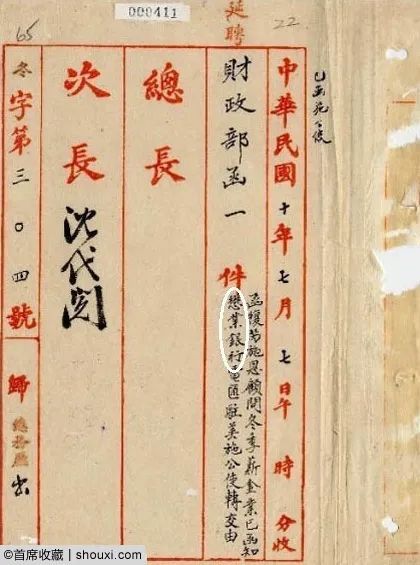 000411
延聘
22
65
中華民國十年七月七日午時分收
財政部函一件
函復芮施恩顧問冬季薪金業已函知
懋業銀行電匯駐美施公使轉交由
總長
次長
沈代閱
冬字第三〇四號
歸總務廳
首席收藏 | shouxi.com